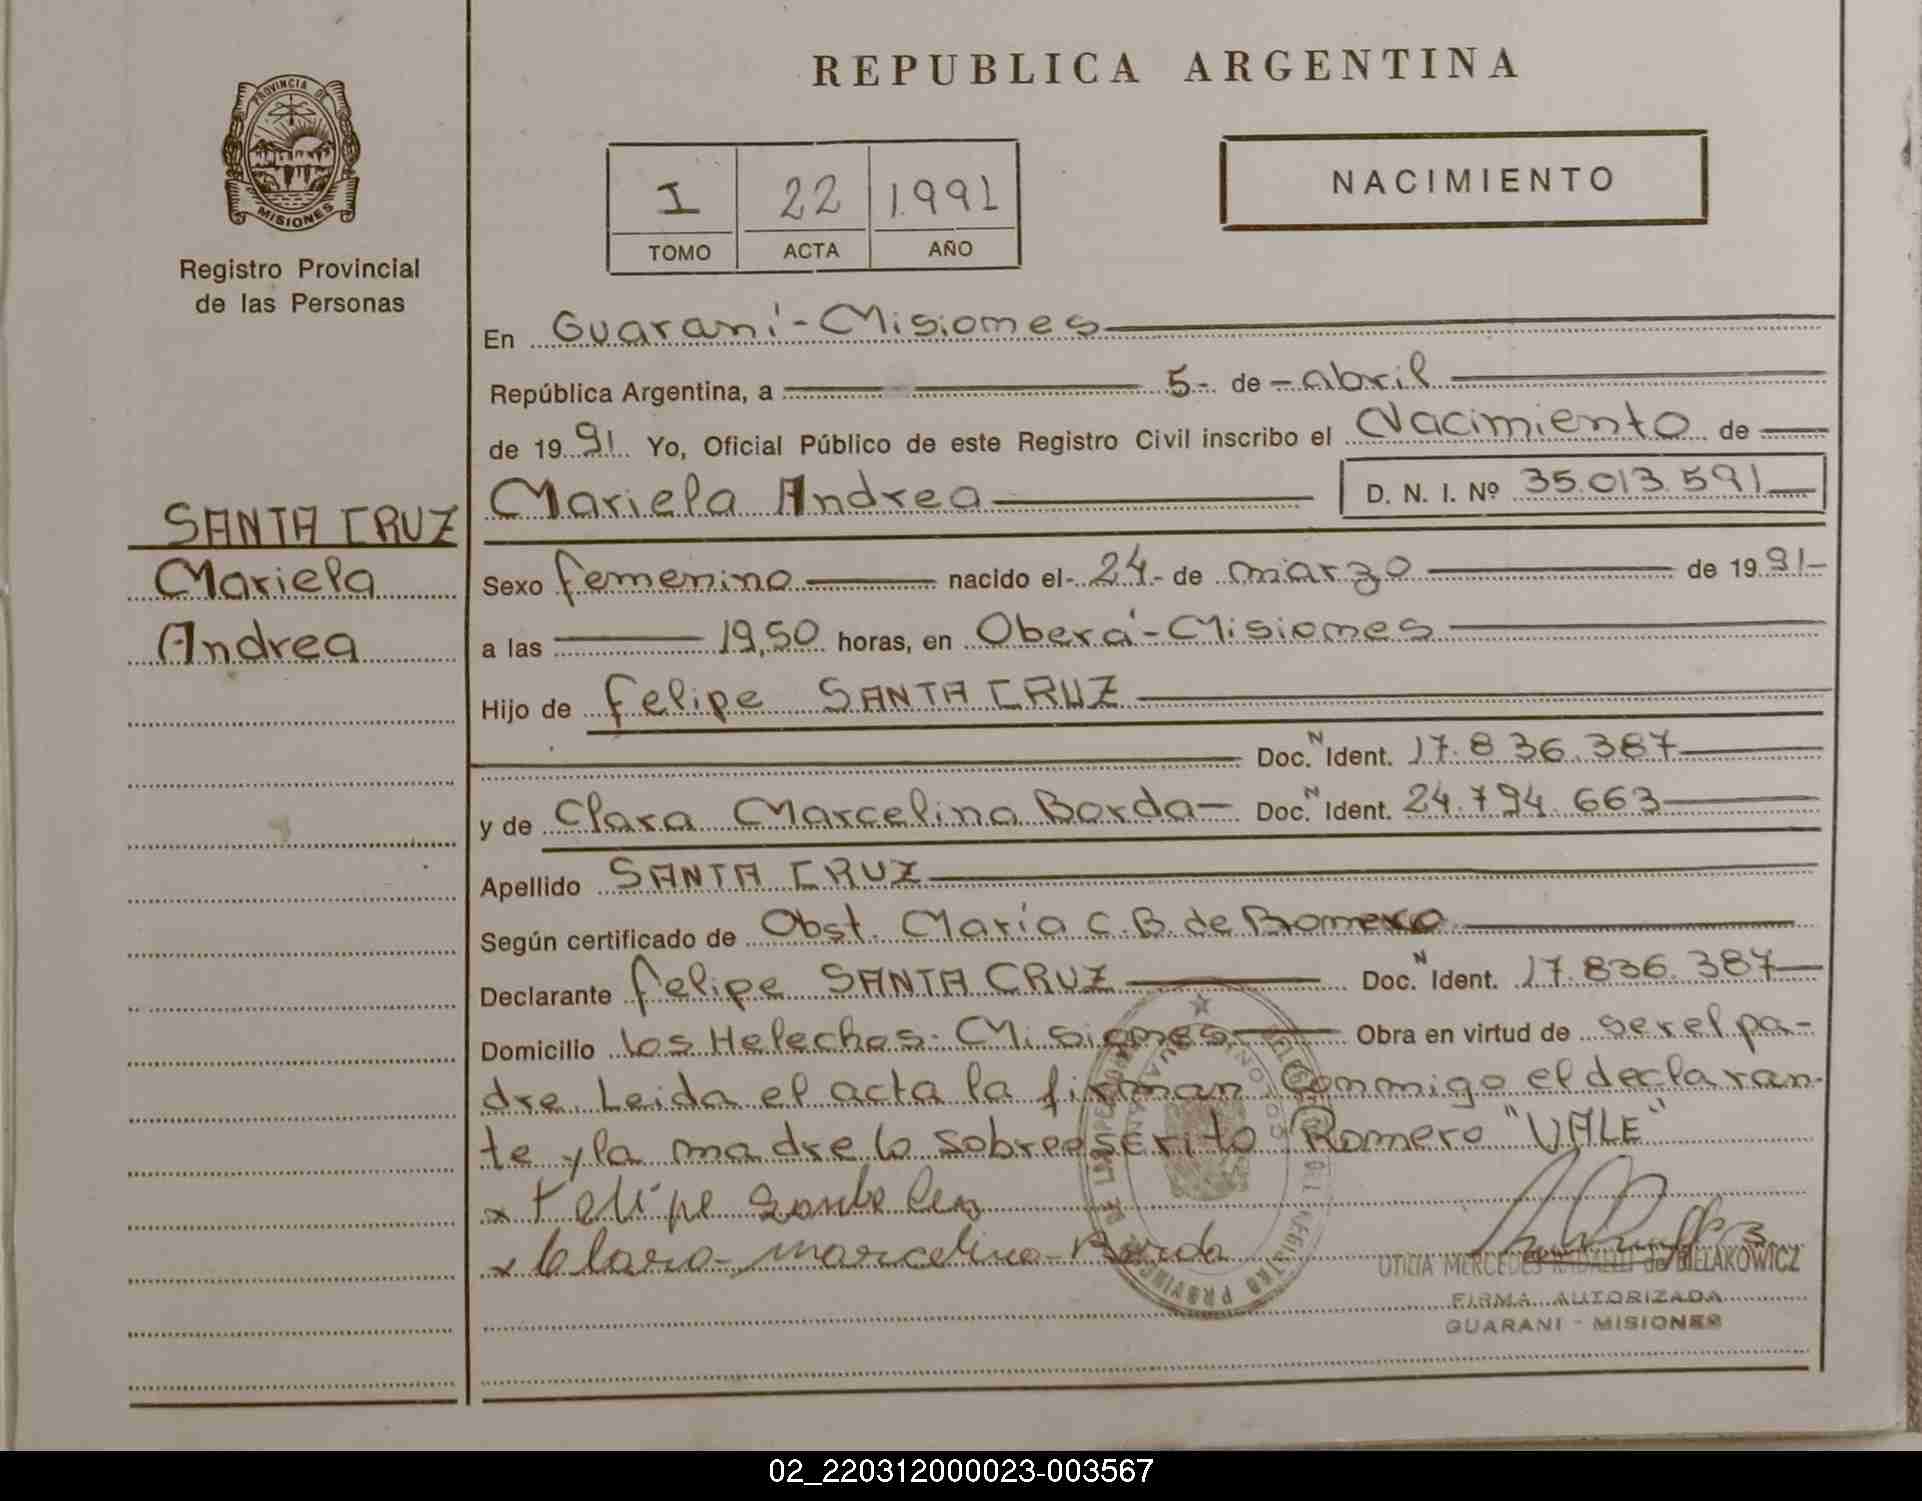 REPUBLICA ARGENTINA
PROVINCIA DE
MISIONES
Registro Provincial
de las Personas
I 22 1991
TOMO ACTA AÑO
NACIMIENTO
SANTA CRUZ
Mariela
Andrea
En Guaraní-Misiones
República Argentina, a 5- de - abril
de 19 91. Yo, Oficial Público de este Registro Civil inscribo el Nacimiento de
Mariela Andrea D. N. I. Nº 35.013.591
Sexo femenino nacido el- 24 - de marzo de 19 91-
a las 19,50 horas, en Oberá-Misiones
Hijo de felipe SANTA CRUZ
Doc. N Ident. 17.836.387
y de Clara Marcelina Borda- Doc. N Ident. 24.794.663
Apellido SANTA CRUZ
Según certificado de Obst. María C.B. de Romero
Declarante felipe SANTA CRUZ Doc. N Ident. 17.836.387
Domicilio los Helechos- Misiones Obra en virtud de ser el pa-
dre. Leida el acta la firman conmigo el declaran-
te y la madre lo sobreeserito Romero "VALE"
x Felipe Santa Cruz
x Clara-marcelina-Borda
MERCEDES de BIELAKOWICZ
FIRMA AUTORIZADA
GUARANI - MISIONES
02_220312000023-003567